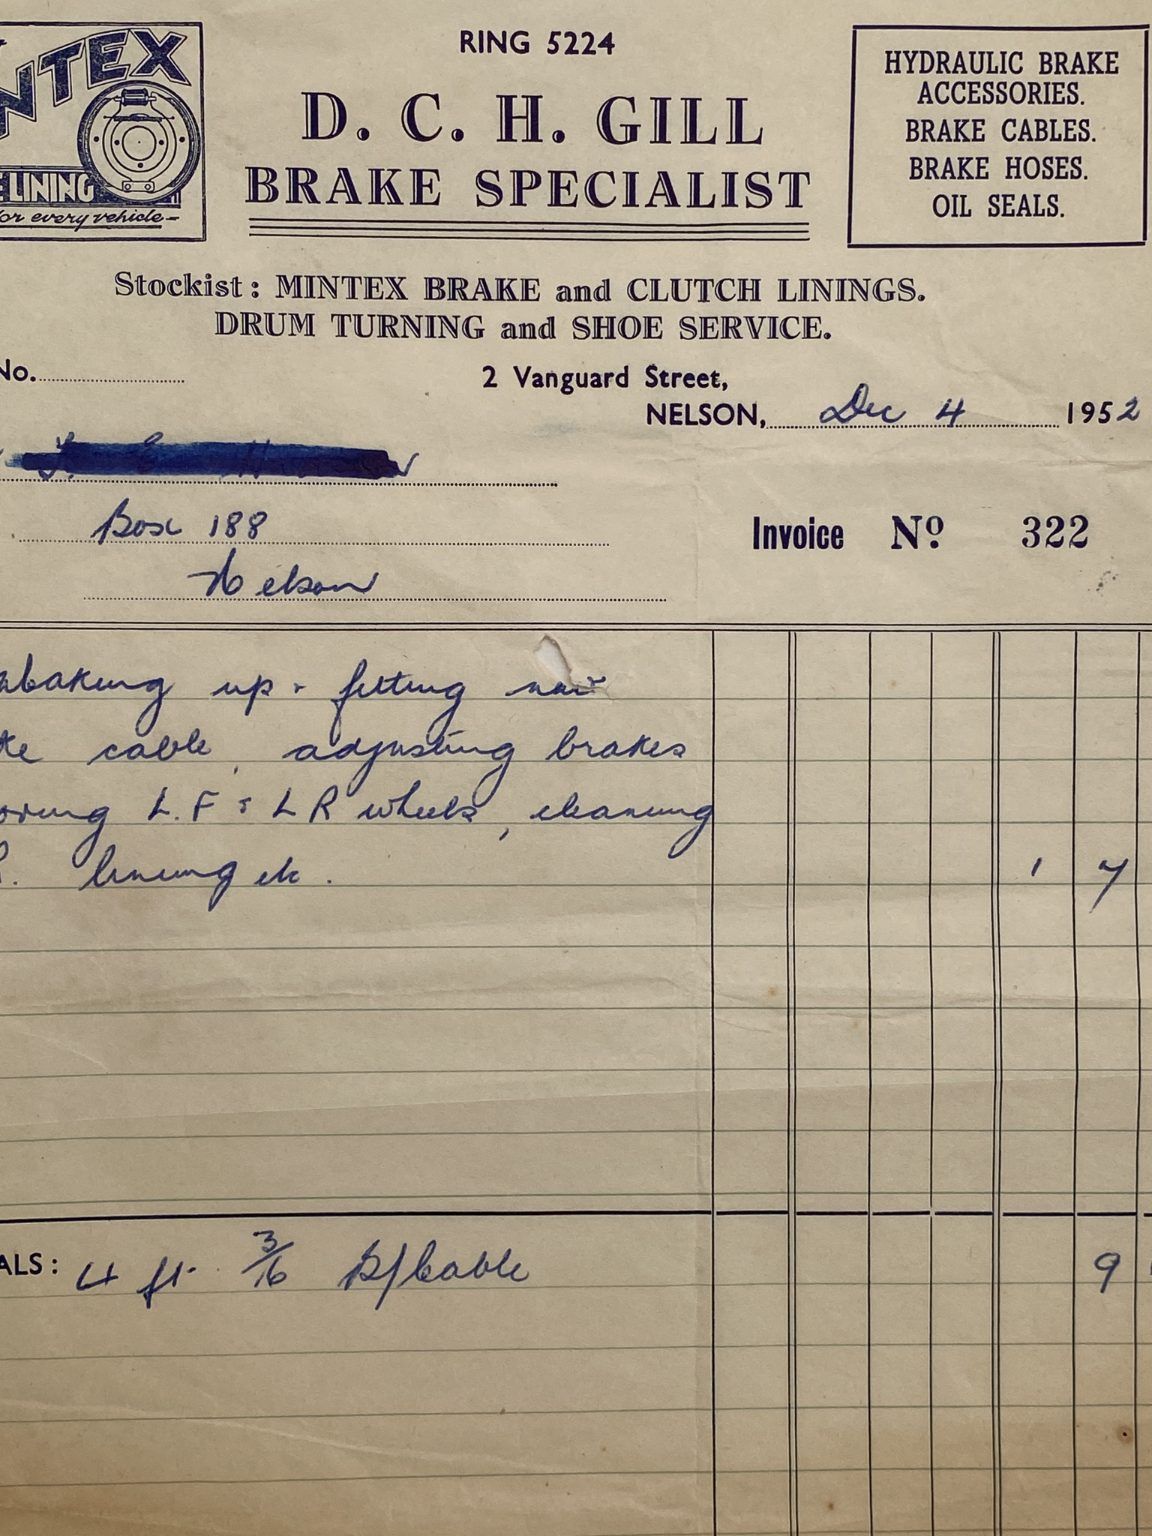 NTEX
LINING
for every vehicle
RING 5224
D. C. H. GILL
BRAKE SPECIALIST
HYDRAULIC BRAKE
ACCESSORIES.
BRAKE CABLES.
BRAKE HOSES.
OIL SEALS.
Stockist: MINTEX BRAKE and CLUTCH LININGS.
DRUM TURNING and SHOE SERVICE.
No.
2 Vanguard Street,
NELSON, Dec 4 1952
Box 188
Invoice No 322
Nelson
up & fitting new
cable, adjusting brakes
L.F & L R wheels, cleaning
lining etc. 1 7
ALS: 4 ft. 3/16 B/Cable 9